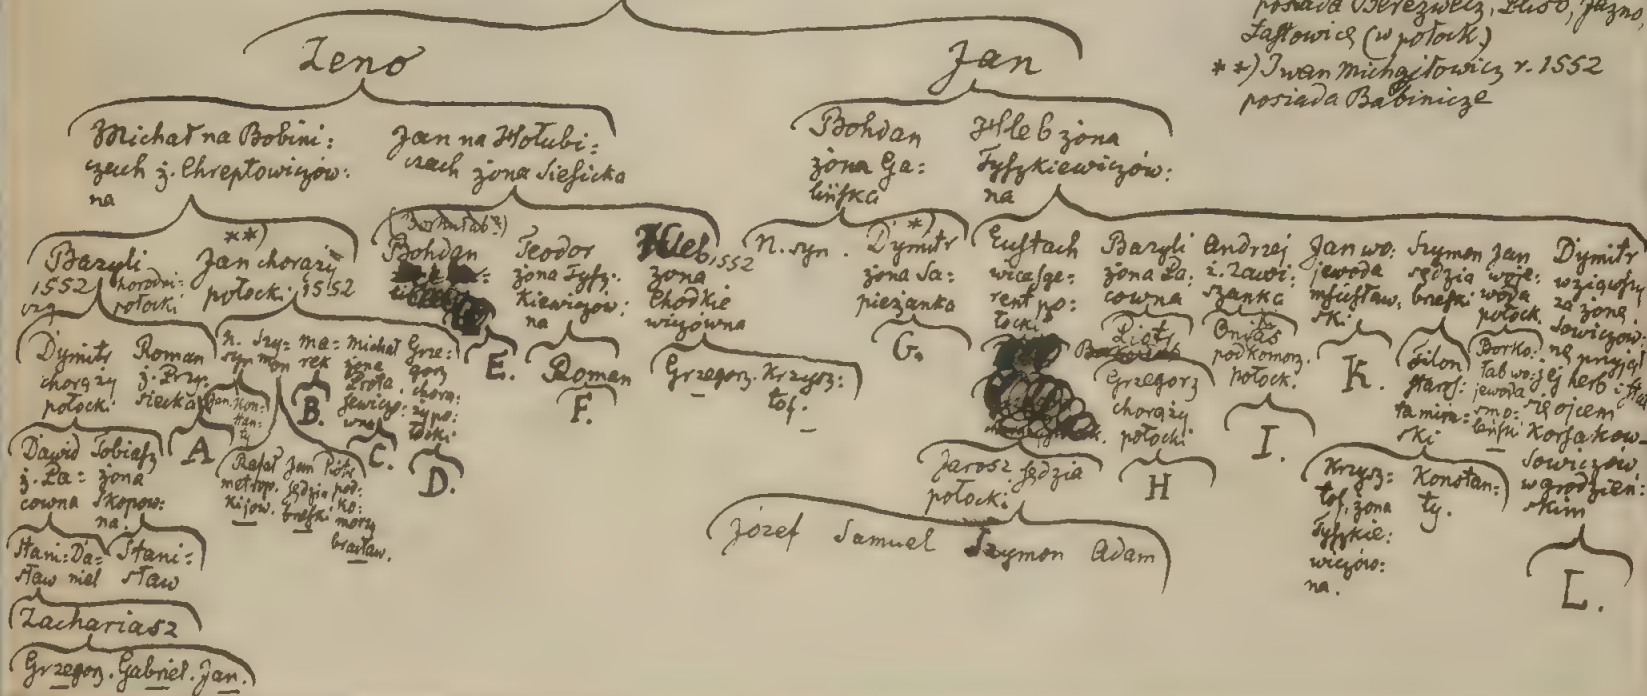 posiada Berezwecz,
Zeno
Jan
(w połock.)
**) Iwan Michajłowicz r. 1552
posiada Babinicze
Michał na Bobini:
czach ż. Chreptowiczów:
na
Jan na Hołubi:
czach żona Siesicka
Bohdan
żona Ga:
Hleb żona
Tyszkiewiczów:
na
Bazyli
1552 horodni:
połocki
**)
Jan chorąży
połocki 1552
Bohdan
Teodor
żona Tysz:
kiewiczow:
na
Hleb 1552
żona
Chodkie
wiczówna
N. syn.
*)
Dymitr
żona Sa:
pieżanka
Eustach
połocki
Bazyli
żona Pa:
cowna
Andrzej
ż. Zawi:
szanka
Jan wo:
jewoda
mścisław:
ski
Szymon
sędzia
brasł
Jan
woje:
woda
połock.
Dymitr
wziąwszy
za żonę
Sowiczów:
nę przyjął
jej herb i
się ojcem
Korsakow
Sowiczów
w grodzień:
skim
Dymitr
chorąży
połocki
Roman
ż. Przy:
siecka
N.
syn
Szy:
mon
ma:
rek
Michał
żona
Prota
sewiczo:
wna
Grze:
gorz
chorą:
ży po:
łocki
E.
Roman
F.
Grzegorz. Krzysz:
tof.
G.
Piotr
Grzegorz
chorąży
połocki
H
podkomorz.
połock.
I.
K.
Filon
Krzysz:
tof, żona
Tyszkie:
wiczów:
na.
Konstan:
ty.
L.
A
B.
C.
D.
Dawid
ż. Pa:
cowna
Tobiasz
żona
Skopow:
na.
Rafał
metrop.
kijow.
Jan
sędzia
Piotr
pod:
ko:
morzy
bracław.
Jarosz sędzia
połocki
Józef Samuel Szymon Adam
Stani:
sław
Da:
niel
Stani:
sław
Zachariasz
Grzegorz. Gabriel. Jan.